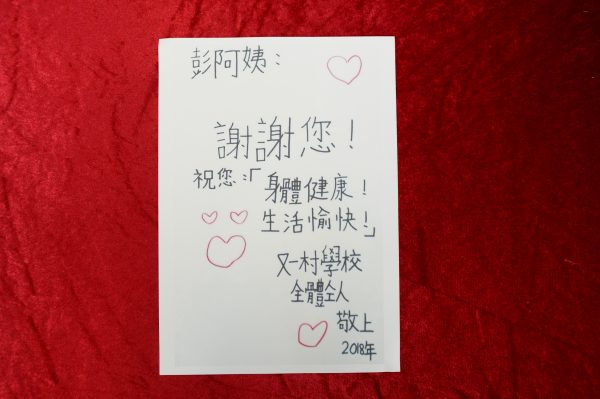 彭阿姨：
謝謝您！
祝您：「身體健康！
生活愉快！」
又一村學校
全體仝人
敬上
2018年